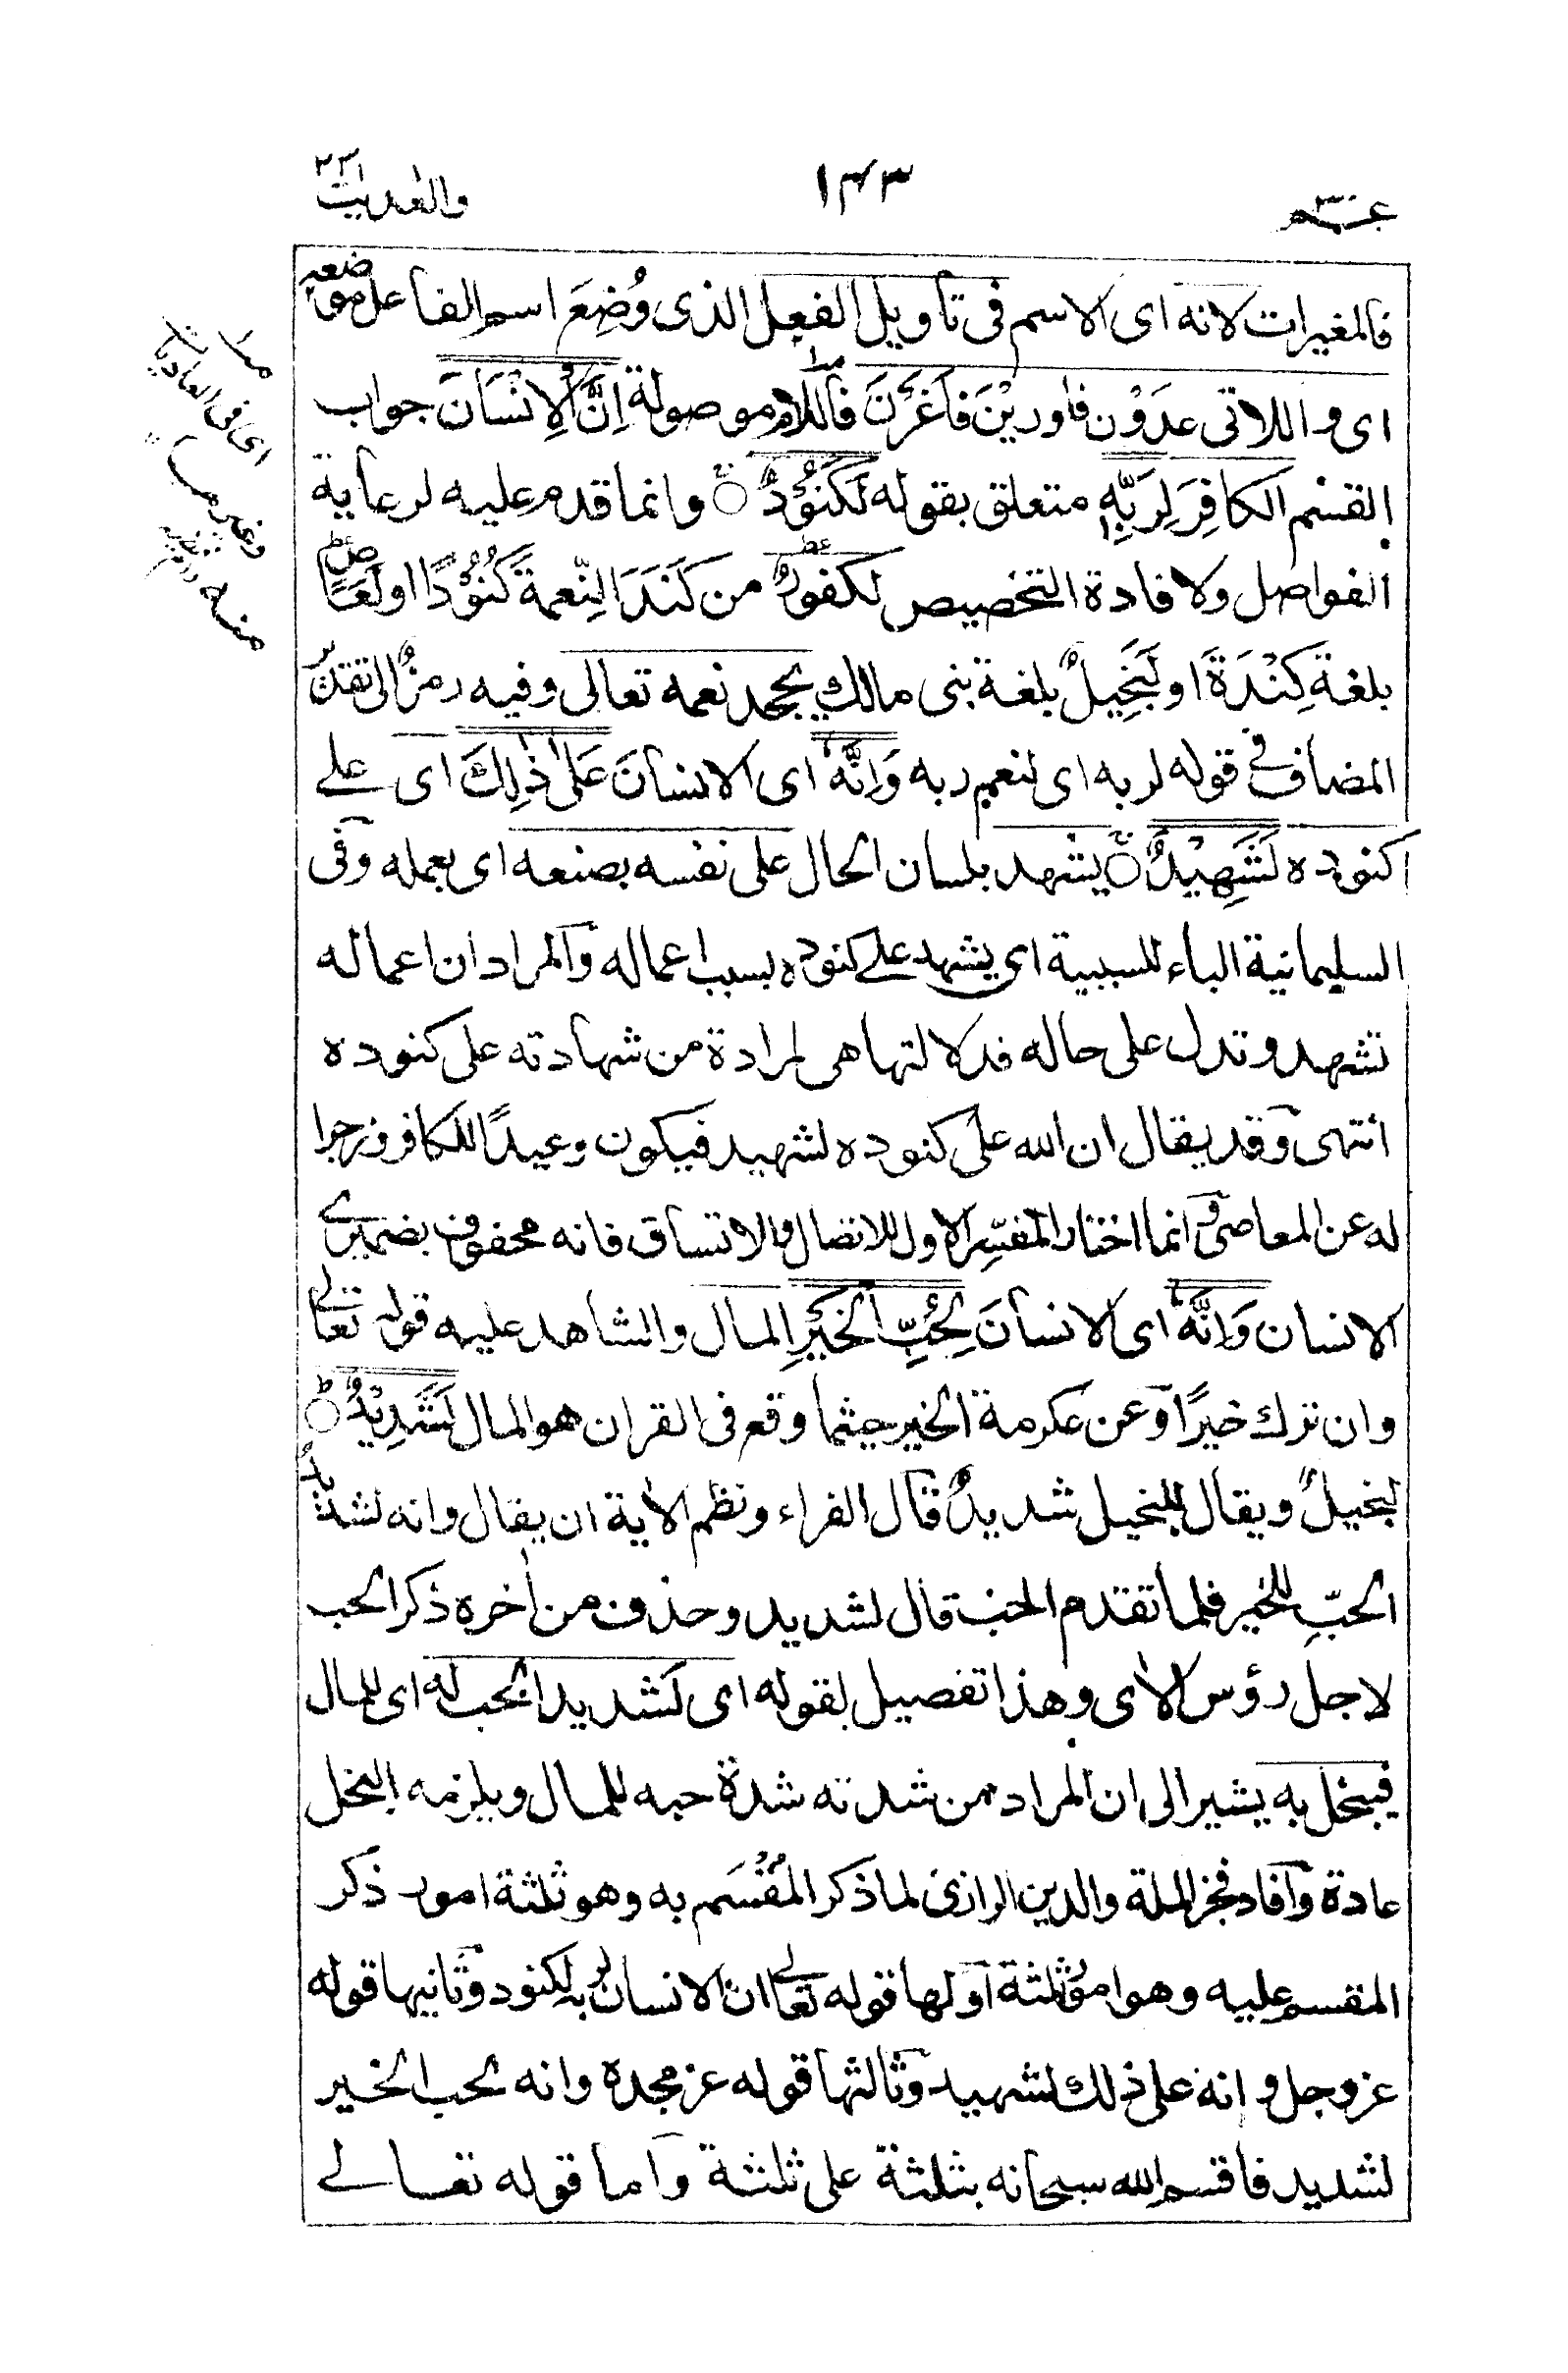 عم ٣٠
١٤٣
والعديت ٣٣
فالمغيرات لانه اى الاسم فى تأويل الفعل الذى وُضِعَ اسم الفاعل موضعه
اى واللاتى عدَوْن فاورَيْنَ فاَغَرْنَ فاللام موصولة اِنَّ الْاِنْسَانَ جواب
القسم الكافِرَ لِرَبِّهٖ متعلق بقوله لَكَنُوْدٌ وانما قدم عليه لرعاية
الفواصل ولافادة التخصيص لكفورٌ من كَنَدَ النِّعمةَ كُنُوْدًا او لَعَاصٍ
بلغة كِنْدَةَ او لَبَخِيلٌ بلغة بنى مالكٍ يجحد نعمه تعالى وفيه رمزٌ الى تقدير
المضاف فى قوله لربه اى لنعم ربه وَاِنَّهٗ اى الانسانَ عَلٰى ذٰلِكَ اى على
كنوده لَشَهِيْدٌ يشهد بلسان الحال على نفسه بصنعه اى بعمله وفى
السليمانية الباء للسببية اى يشهد على كنوده بسبب اعماله والمراد ان اعماله
تشهد وتدل على حاله فدلالتها هى المرادة من شهادته على كنوده
انتهى وقد يقال ان الله على كنوده لشهيد فيكون وعيدًا للكافر وزجرا
له عن المعاصى وانما اختار المفسّر الاول للاتصال والاتساق فانه محفوف بضميرى
الانسان وَاِنَّهٗ اى الانسانَ لِحُبِّ الْخَيْرِ المال والشاهد عليه قوله تعالى
وان ترك خيرًا وعن عكرمة الخير حيثما وقع فى القران هو المال لَشَدِيْدٌ
لبخيلٌ ويقال للبخيل شديدٌ قال الفراء ونظم الاٰية ان يقال وانه لشديدُ
الحبّ للخير فلما تقدم الحب قال لشديد وحذف من اٰخره ذكر الحب
لاجل رؤس الاٰى وهذا تفصيل لقوله اى لَشديد الحب له اى للمال
فيبخل به يشير الى ان المراد من شدته شدة حبه للمال ويلزمه البخل
عادة وافاد فخر الملة والدين الرازى لما ذكر المُقْسَم به وهو ثلثة امور ذكر
المقسم عليه وهو امور ثلثة اولها قوله تعالى ان الانسان لربه لكنود وثانيها قوله
عز وجل وانه على ذلك لشهيد وثالثها قوله عز مجده وانه لحب الخير
لشديد فاقسم الله سبحانه بثلثة على ثلثة واما قوله تعالى
اى فى العاديات
وغيره
منه